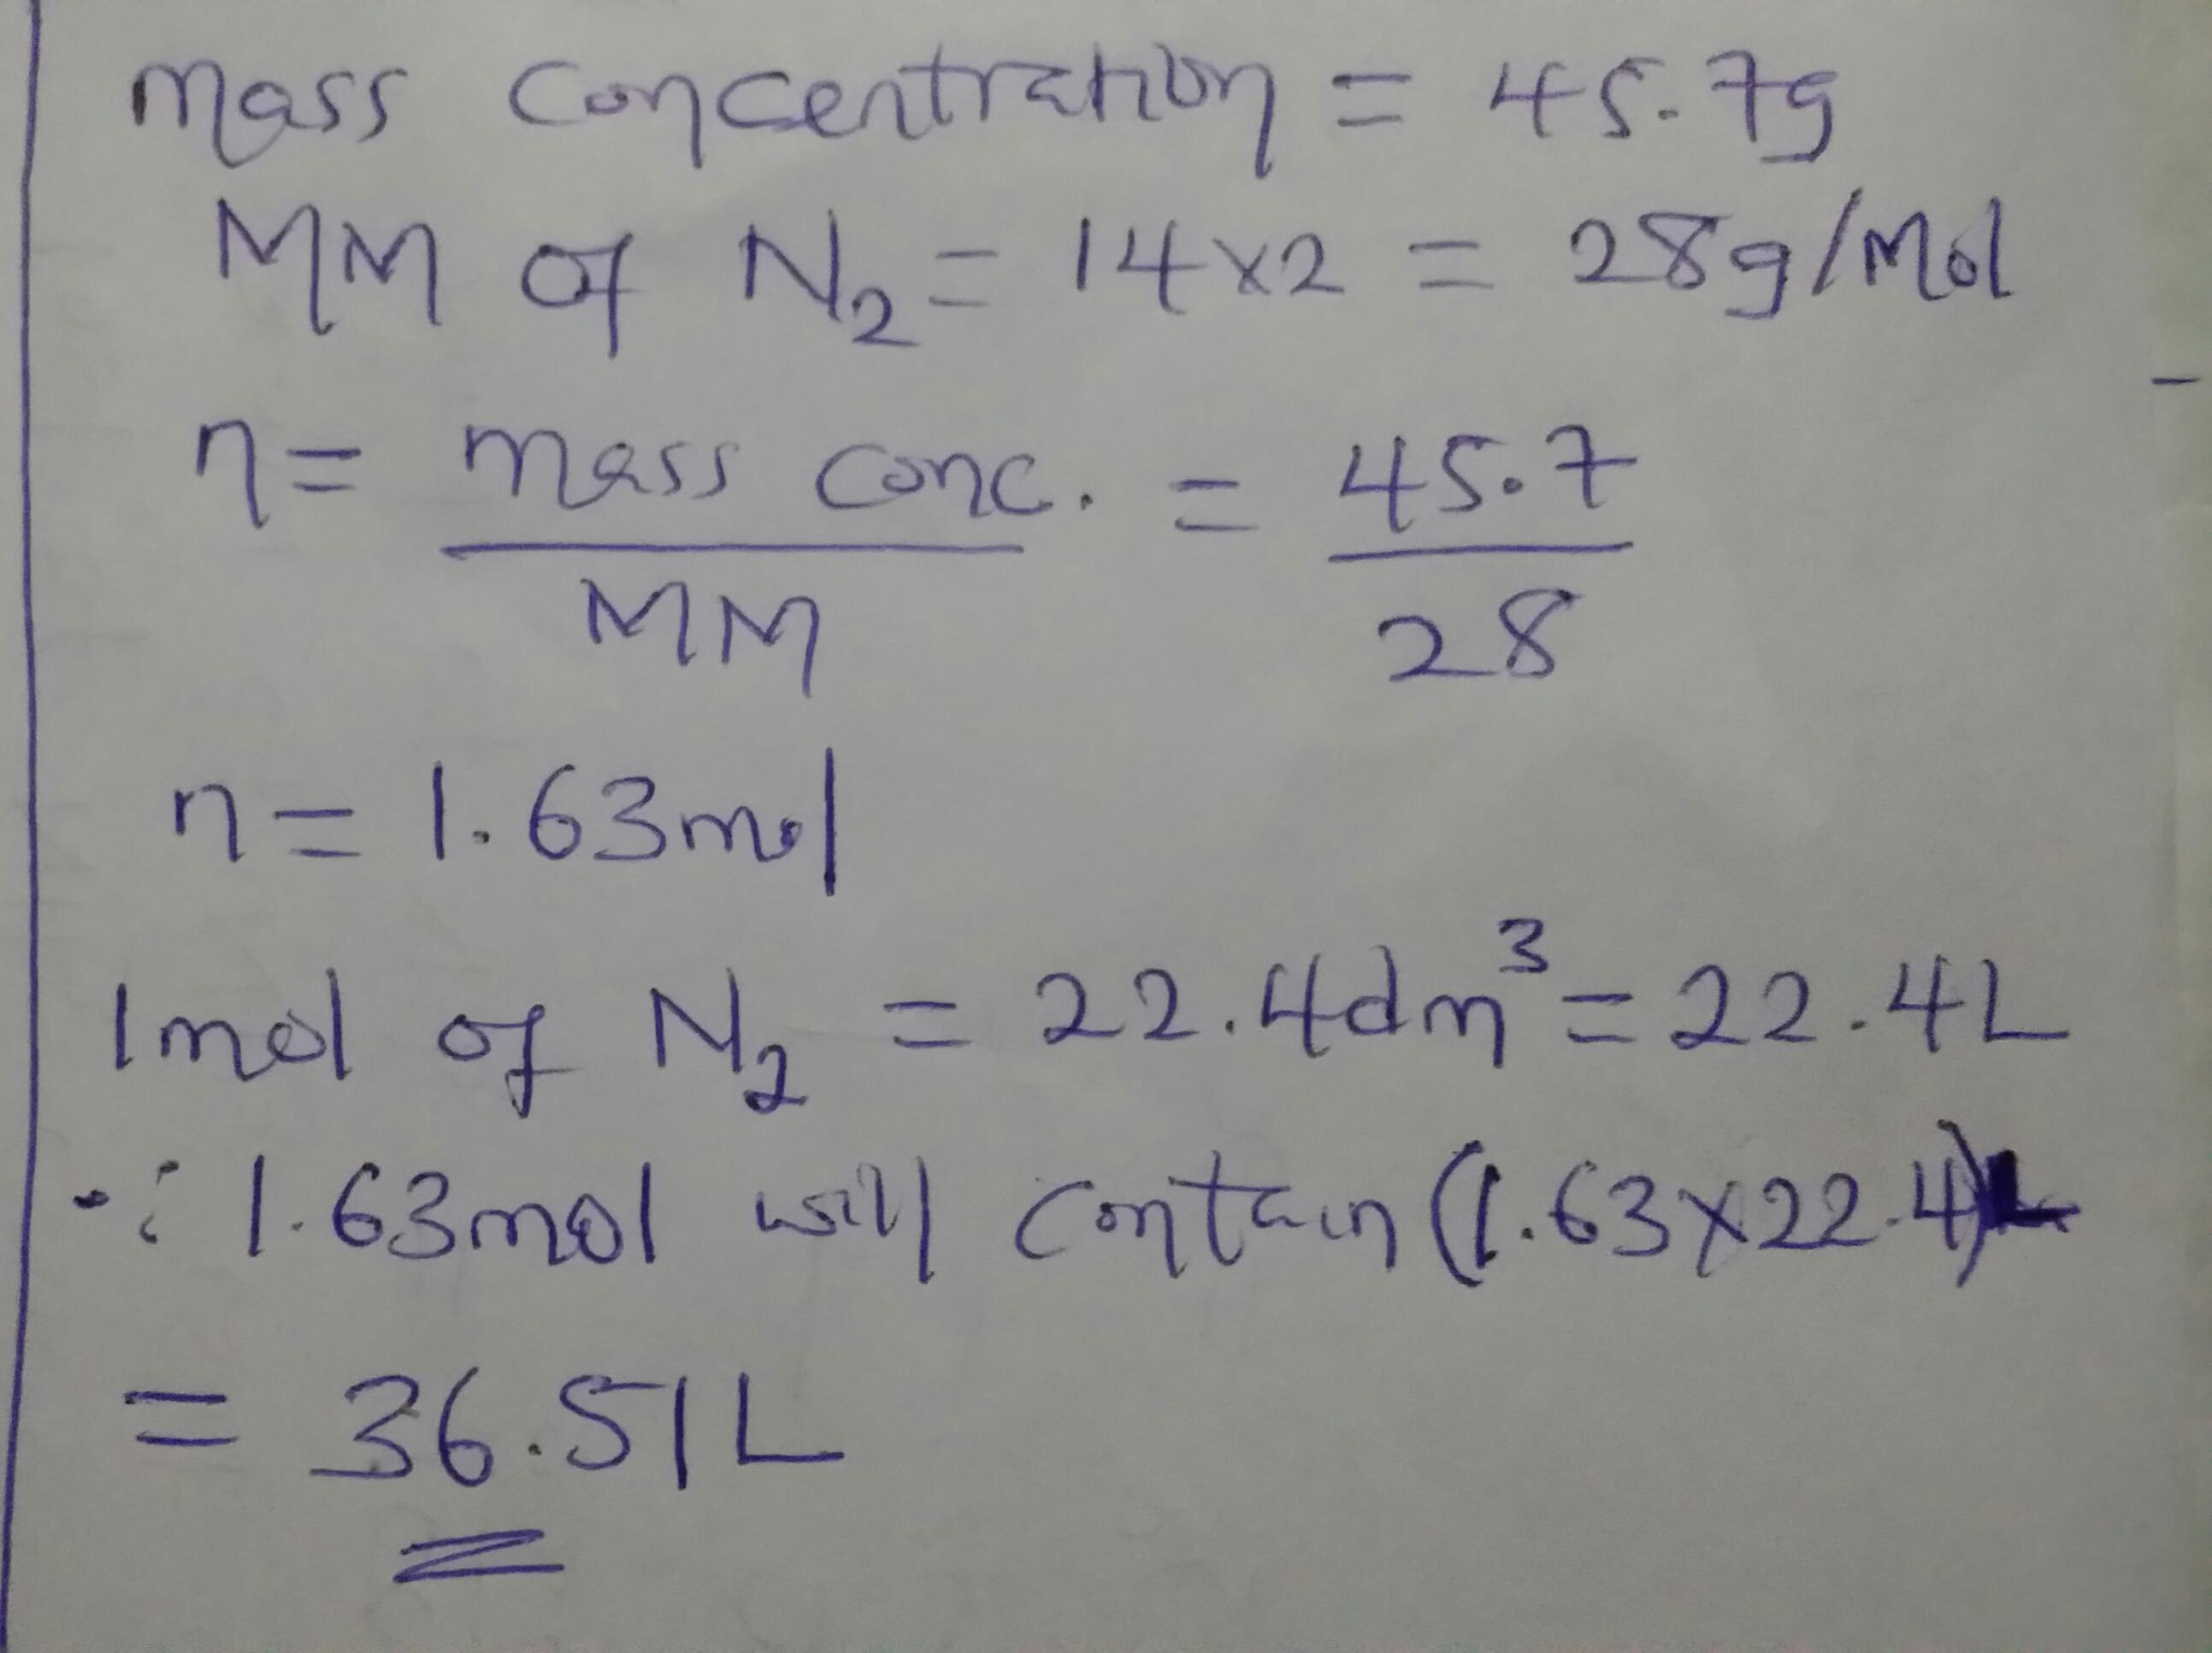 Mass Concentration = 45.7g
MM of N₂ = 14x2 = 28g/Mol
n = mass conc. = 45.7
MM 28
n = 1.63mol
1mol of N₂ = 22.4dm³ = 22.4L
∵ 1.63mol will contain (1.63x22.4)L
= 36.51L